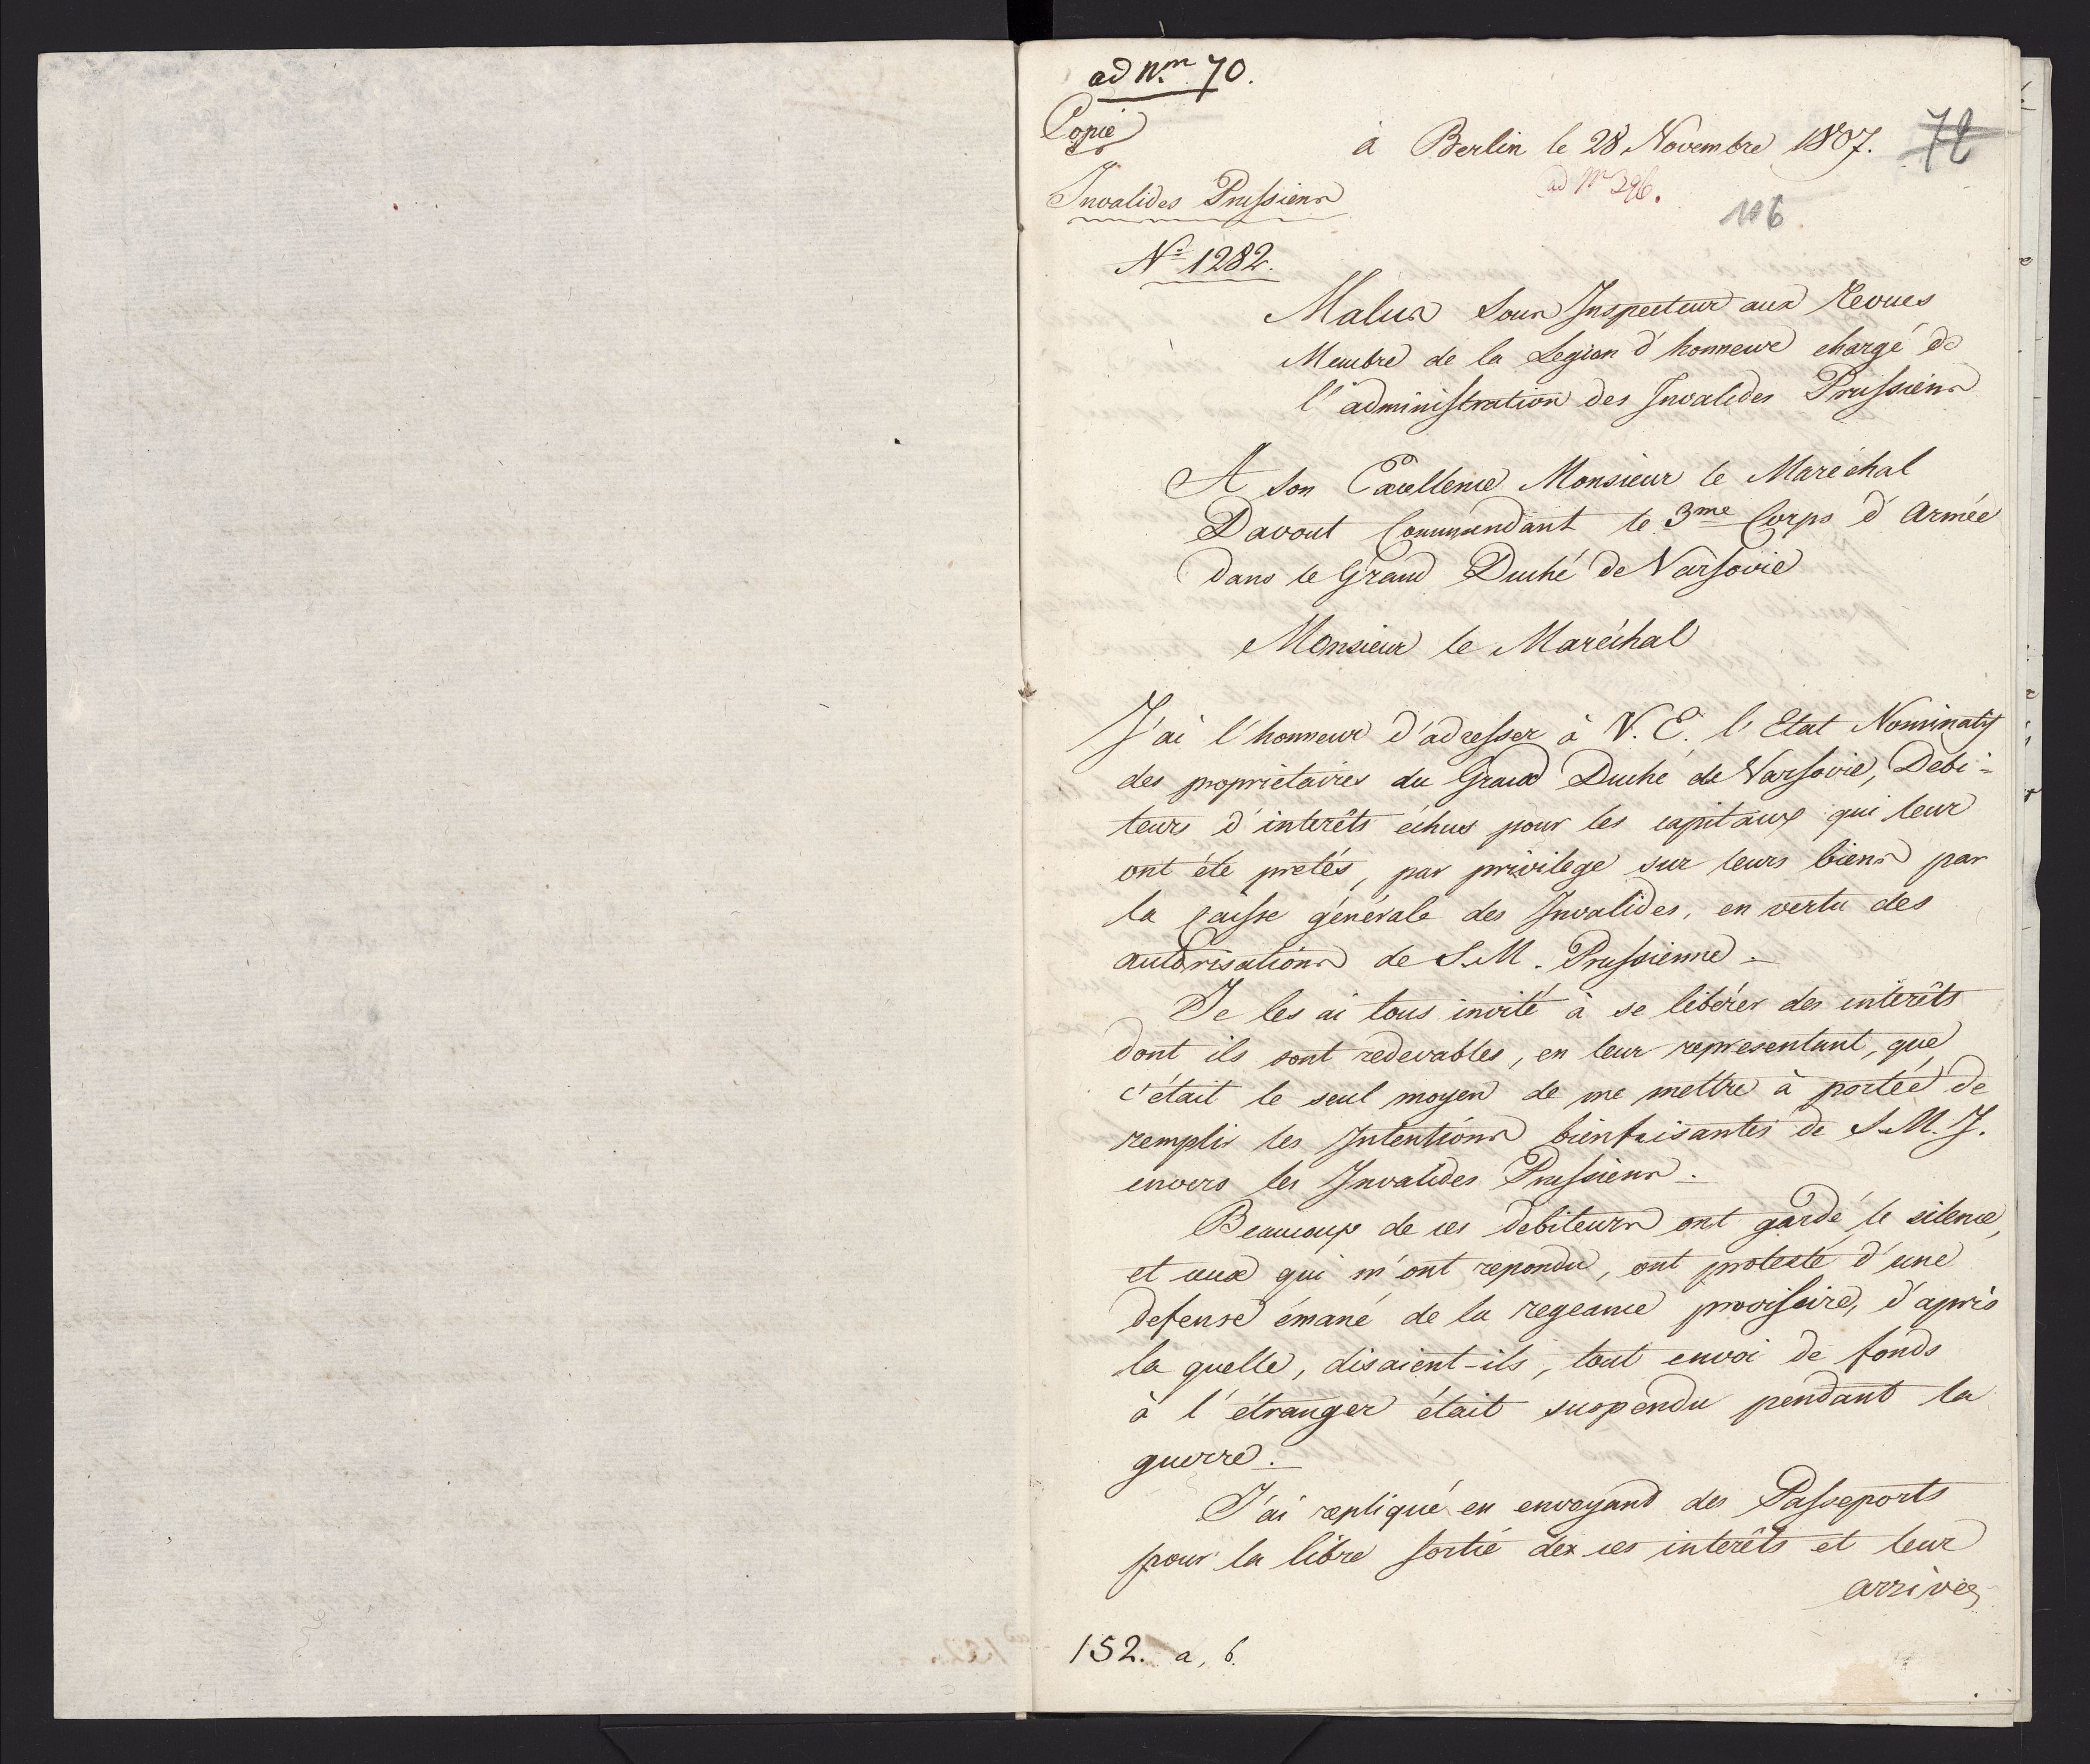 ad Nm 70.
Copie
à Berlin le 28 Novembre 1807.
72
ad No 296.
106
Invalides Prussiens
No 1282.
Malus Sous Inspecteur aux Revues
Membre de la Legion d'honneur chargé de
l'administration des Invalides Prussiens
A Son Excellence Monsieur le Maréchal
Davout Commandant le 3me Corps d'Armée
dans le Grand Duché de Varsovie
Monsieur le Maréchal
J'ai l'honneur d'adresser à V. E. l'Etat Nominatif
des proprietaires du Grand Duché de Varsovie, Debi-
teurs d'interêts échus pour les capitaux qui leur
ont été pretés, par privilege sur leurs biens par
la Caisse générale des Invalides, en vertu des
autorisations de S. M. Prussienne.
Je les ai tous invité à se libérer des interêts
dont ils sont redevables, en leur representant, que
c'était le seul moyen de me mettre à portée de
remplir les Intentions bienfaisantes de S. M. I.
envers les Invalides Prussiens.
Beaucoup de ces debiteurs ont gardé le silence,
et ceux qui m'ont repondu, ont protesté d'une
defense émané de la regeance provisoire, d'apris
la quelle, disaient-ils, tout envoi de fonds
à l'étranger était suspendu pendant la
guerre.
J'ai repliqué en envoyant des Passeports
pour la libre sortie de ces interêts et leur
arrivée
152. a, b.